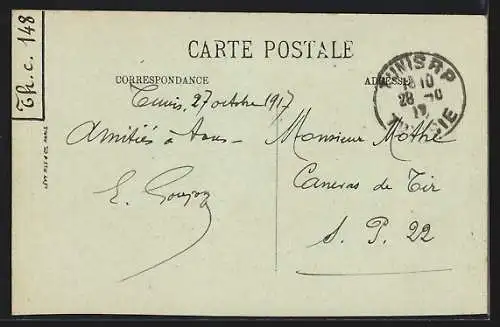 Th. c. 148
CARTE POSTALE
CORRESPONDANCE
ADRESSE
TUNIS RP
18 10
28 -10
17
Tunis, 27 octobre 1917
Amitiés à tous
Monsieur Mothe
Caneras de Tir
S. P. 22
E. Goujon